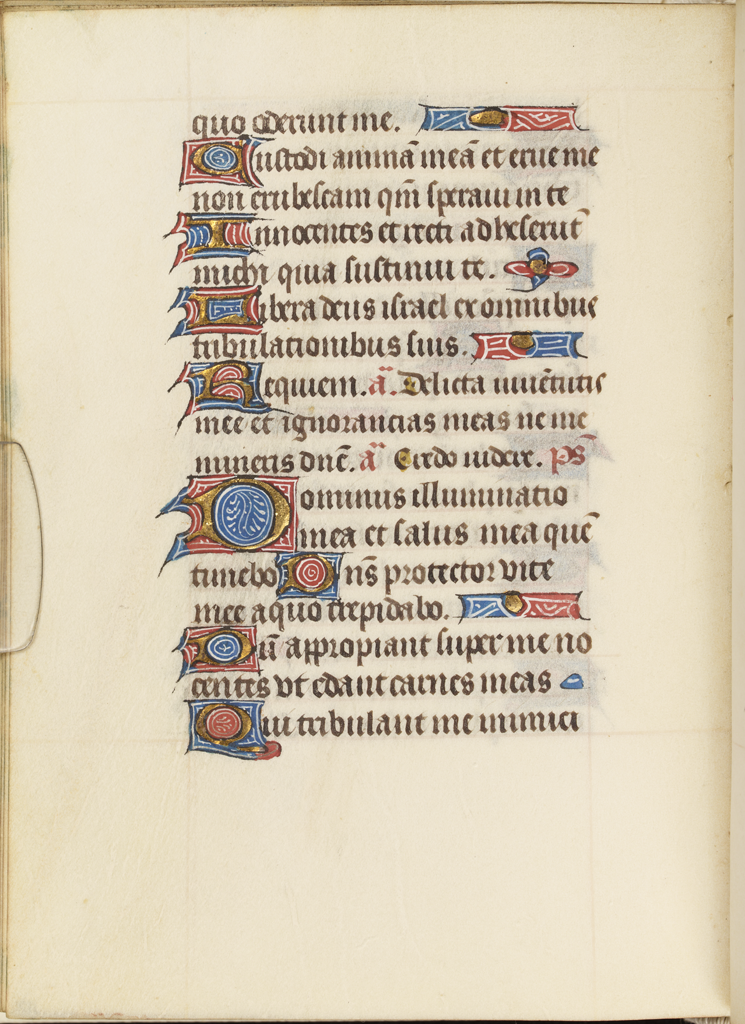 quo oderunt me.
Custodi animā meā et erue me
non erubescam qm̄ speraui in te
Innocentes et recti adheserūt
michi quia sustinui te.
Libera deus israel ex omnibus
tribulationibus suis.
Requiem. a͞. Delicta iuuētutis
mee et ignorancias meas ne me
mineris dn̄e. a͞ Credo uidere. ps̄
Dominus illuminatio
mea et salus mea quē
timebo Dn̄s protector vite
mee a quo trepidabo.
Dū appropiant super me no
centes vt edant carnes meas
Qui tribulant me inimici